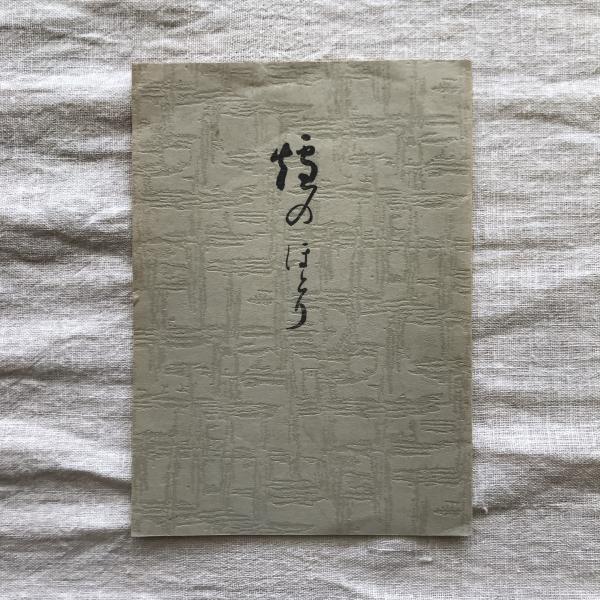 爐のほとり